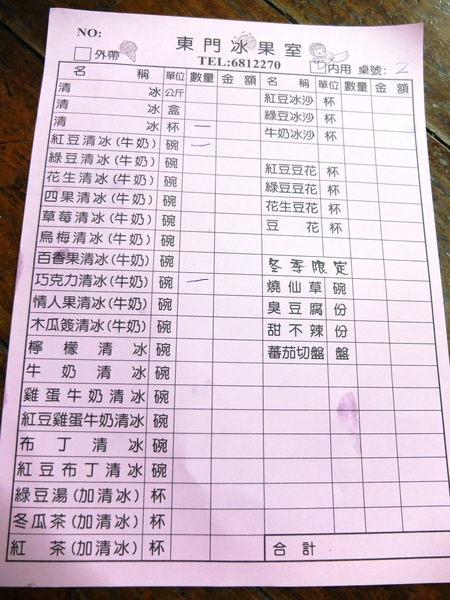 NO:
東門冰果室
外帶
TEL:6812270
內用 桌號: 2
名稱 單位 數量 金額 名稱 單位 數量 金額
清冰 公斤 紅豆冰沙 杯
清冰 盒 綠豆冰沙 杯
清冰 杯 一 牛奶冰沙 杯
紅豆清冰(牛奶) 碗 一
綠豆清冰(牛奶) 碗 紅豆豆花 杯
花生清冰(牛奶) 碗 綠豆豆花 杯
四果清冰(牛奶) 碗 花生豆花 杯
草莓清冰(牛奶) 碗 豆花 杯
烏梅清冰(牛奶) 碗
百香果清冰(牛奶) 碗 冬季限定
巧克力清冰(牛奶) 碗 一 燒仙草 碗
情人果清冰(牛奶) 碗 臭豆腐 份
木瓜簽清冰(牛奶) 碗 甜不辣 份
檸檬清冰 碗 蕃茄切盤 盤
牛奶清冰 碗
雞蛋牛奶清冰 碗
紅豆雞蛋牛奶清冰 碗
布丁清冰 碗
紅豆布丁清冰 碗
綠豆湯(加清冰) 杯
冬瓜茶(加清冰) 杯
紅茶(加清冰) 杯 合計